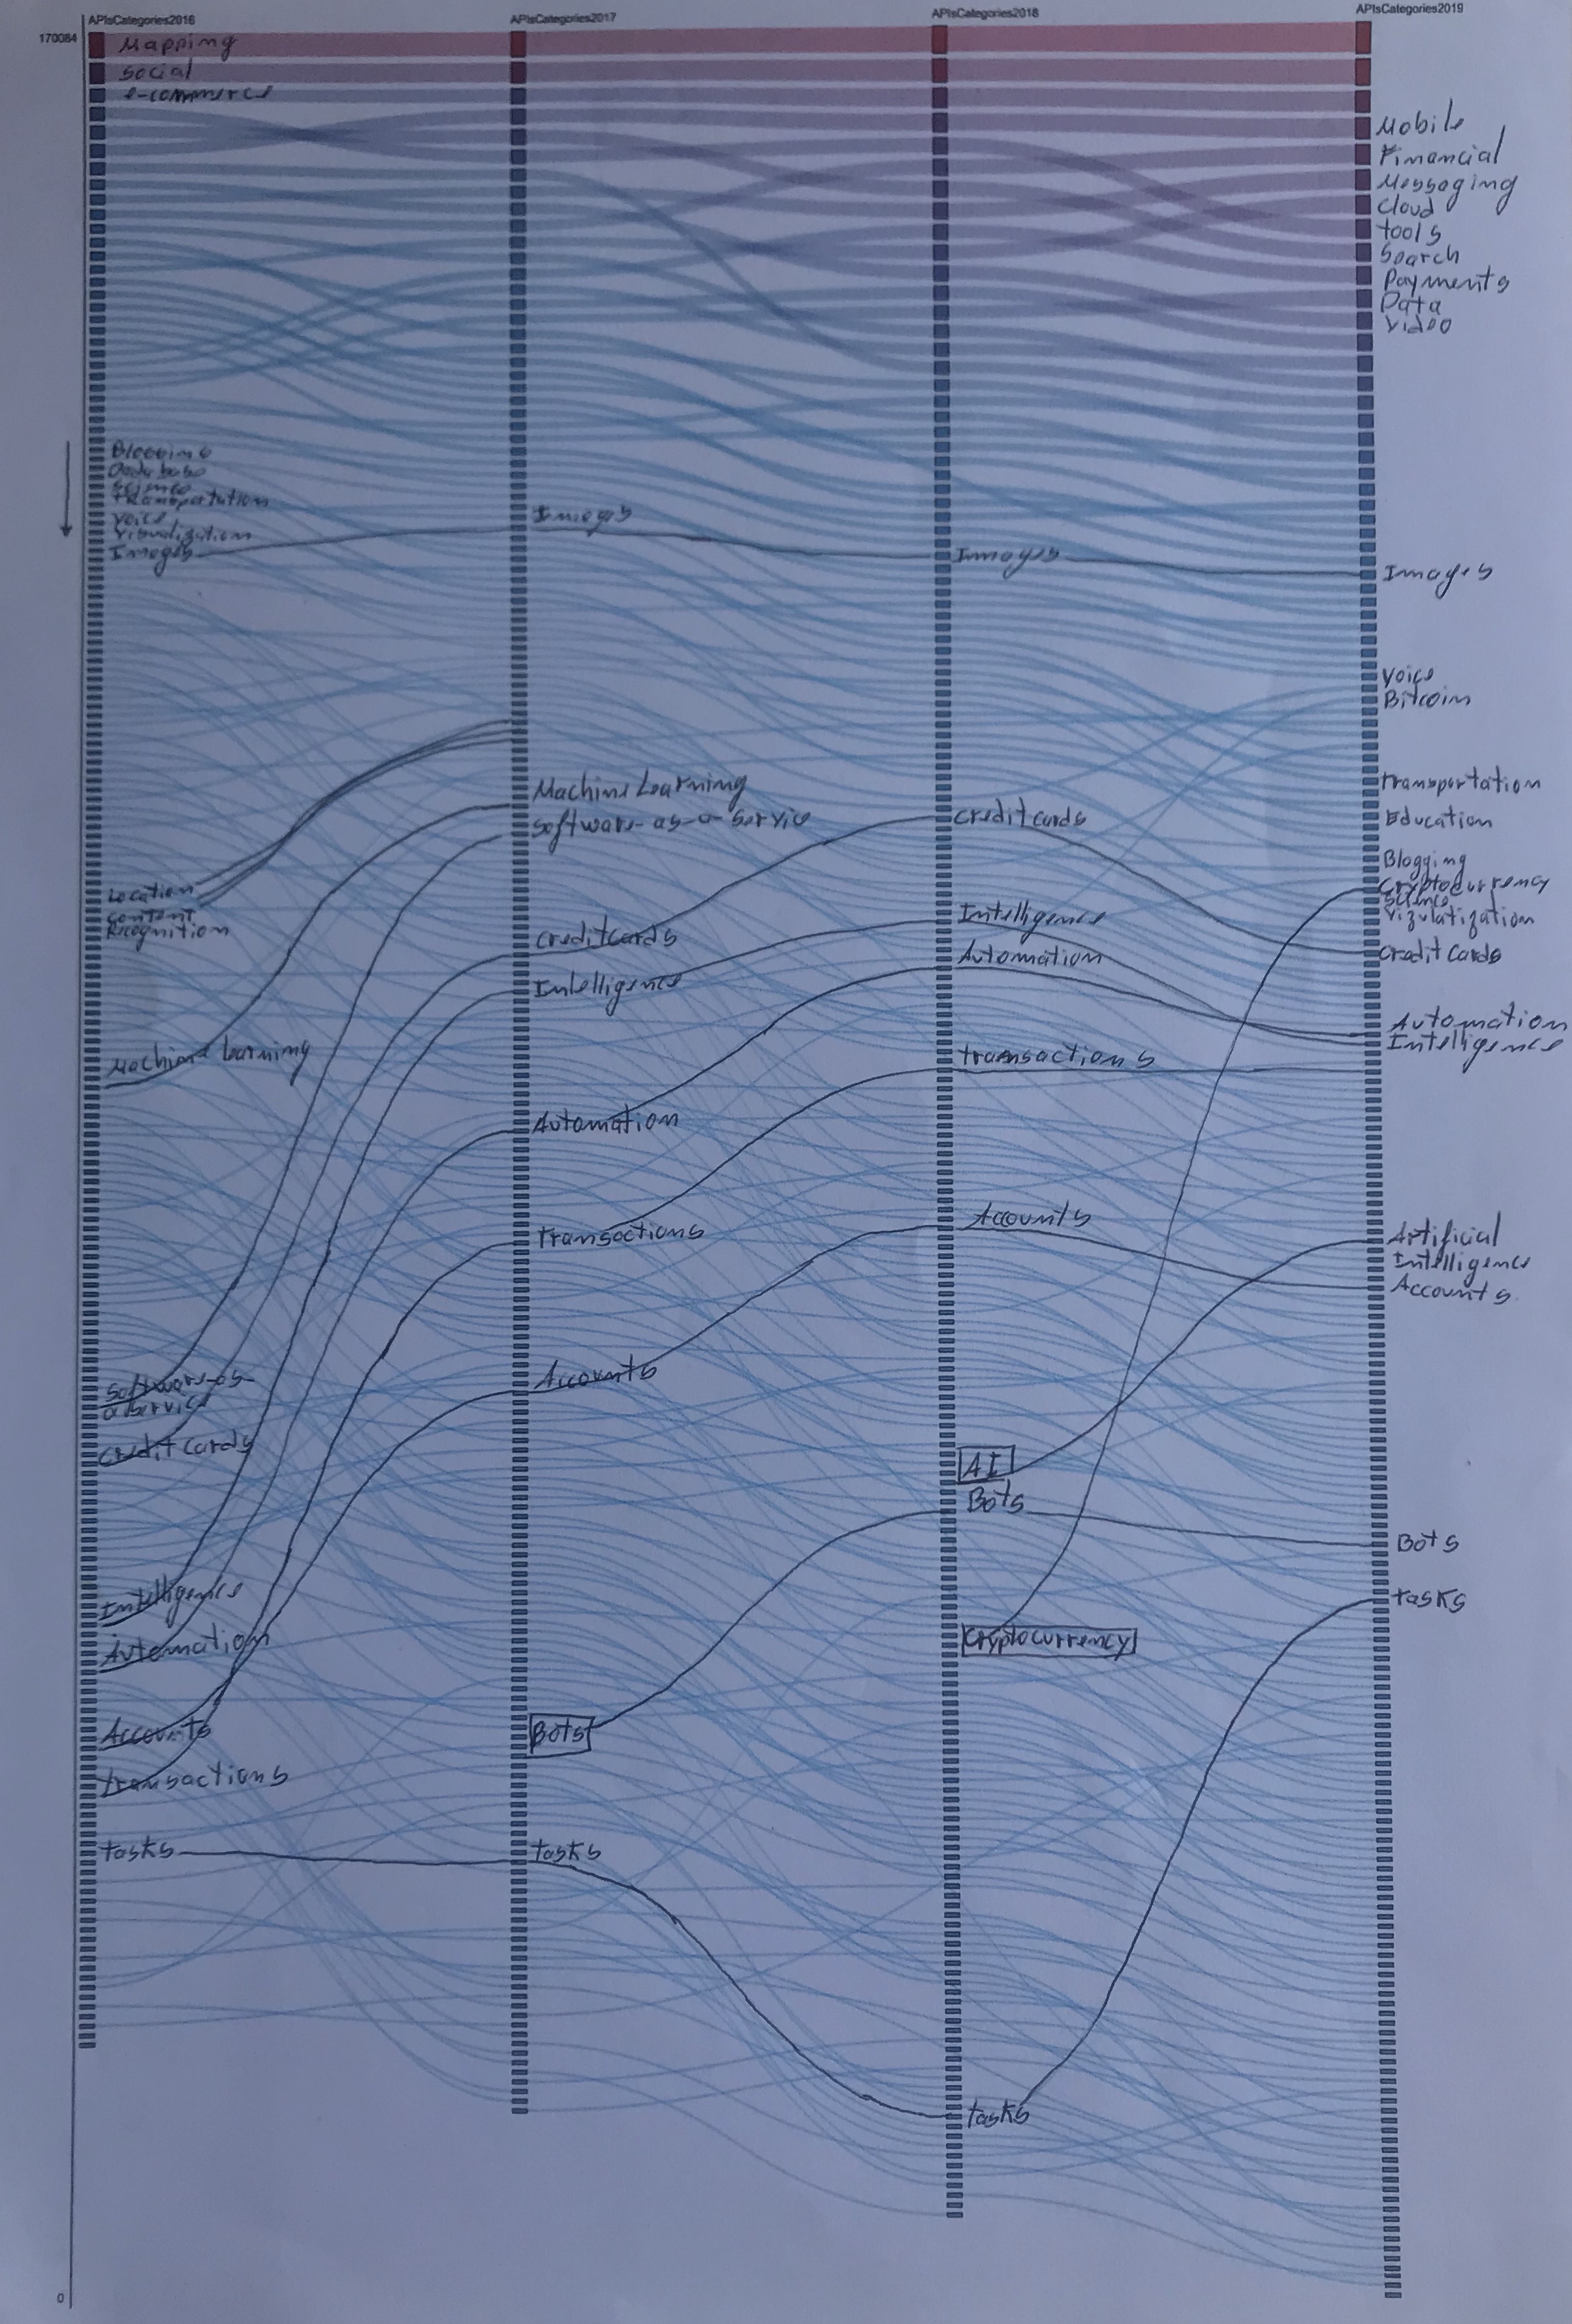 APIsCategories2016
APIsCategories2017
APIsCategories2018
APIsCategories2019
170084
Mapping
social
e-commerce
Mobile
Financial
Messaging
Cloud
tools
Search
Payments
Data
Video
Blogging
Transportation
Voice
Visualization
Images
Images
Images
Images
Voice
Bitcoin
Transportation
Education
Blogging
Cryptocurrency
Science
Vizulatization
Credit Cards
Machine Learning
Software-as-a-Service
credit cards
Location
content
Recognition
credit cards
Intelligence
Intelligence
Automation
Automation
Intelligence
Machine learning
transactions
Automation
Transactions
Accounts
Artificial
Intelligence
Accounts
Accounts
Software-as-
a service
credit cards
AI
Bots
Bots
Intelligence
tasks
Automation
Cryptocurrency
Accounts
Bots
transactions
tasks
tasks
tasks
0